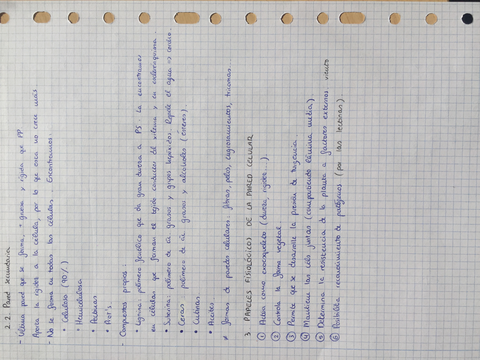 2.2. Pared secundaria
- Última pared que se forma, + gruesa y rígida que PP.
Aporta la rigidez a la célula, por lo que ésta no crece más
- No se forma en todas las células. Encontramos:
• Celulosa (90%)
• Hemicelulosa
• Pectinas
• Prot's.
- Compuestos propios:
• Lignina: polímero fenólico que da gran dureza a PS. La encontramos
en células que forman el tejido conductor del xilema y en esclerénquima
• Suberina: polímero de ác. grasos y grupos fenólicos. Repele el agua
• Ceras: polímero de ác. grasos y alcoholes (ésteres).
• Cutinas.
• Aceites
* Formas de paredes celulares: fibras, pelos, engrosamientos, tricomas.
3. PAPELES FISIOLÓGICOS DE LA PARED CELULAR
① Actúa como exoesqueleto (dureza, rigidez...).
② Controla la forma vegetal
③ Permite que se desarrolle la presión de turgencia.
④ Mantiene las céls juntas (componente lámina media)
⑤ Determina la resistencia de la planta a factores externos viento
⑥ Posibilita reconocimiento de patógenos (por las lectinas)